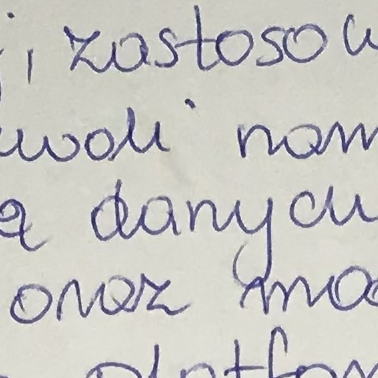 j, zastosow
woli nam
a danych
oraz mo
platfor